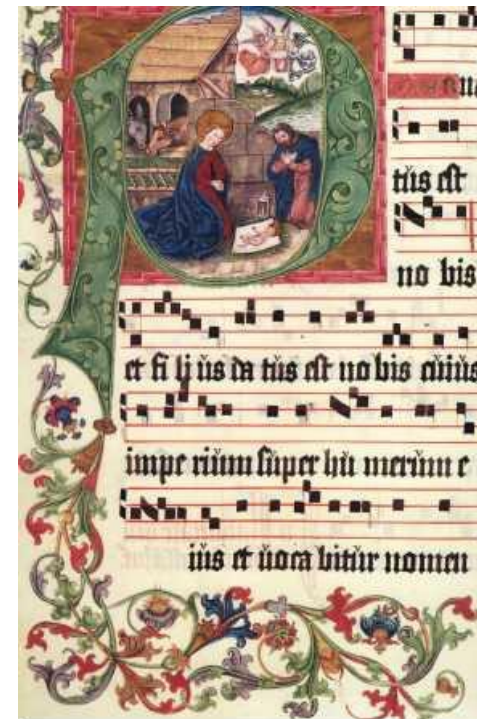 tus est
no bis
et fi lj us da tus est no bis cuius
impe rium super hu merum e
ius et uoca bitur nomen